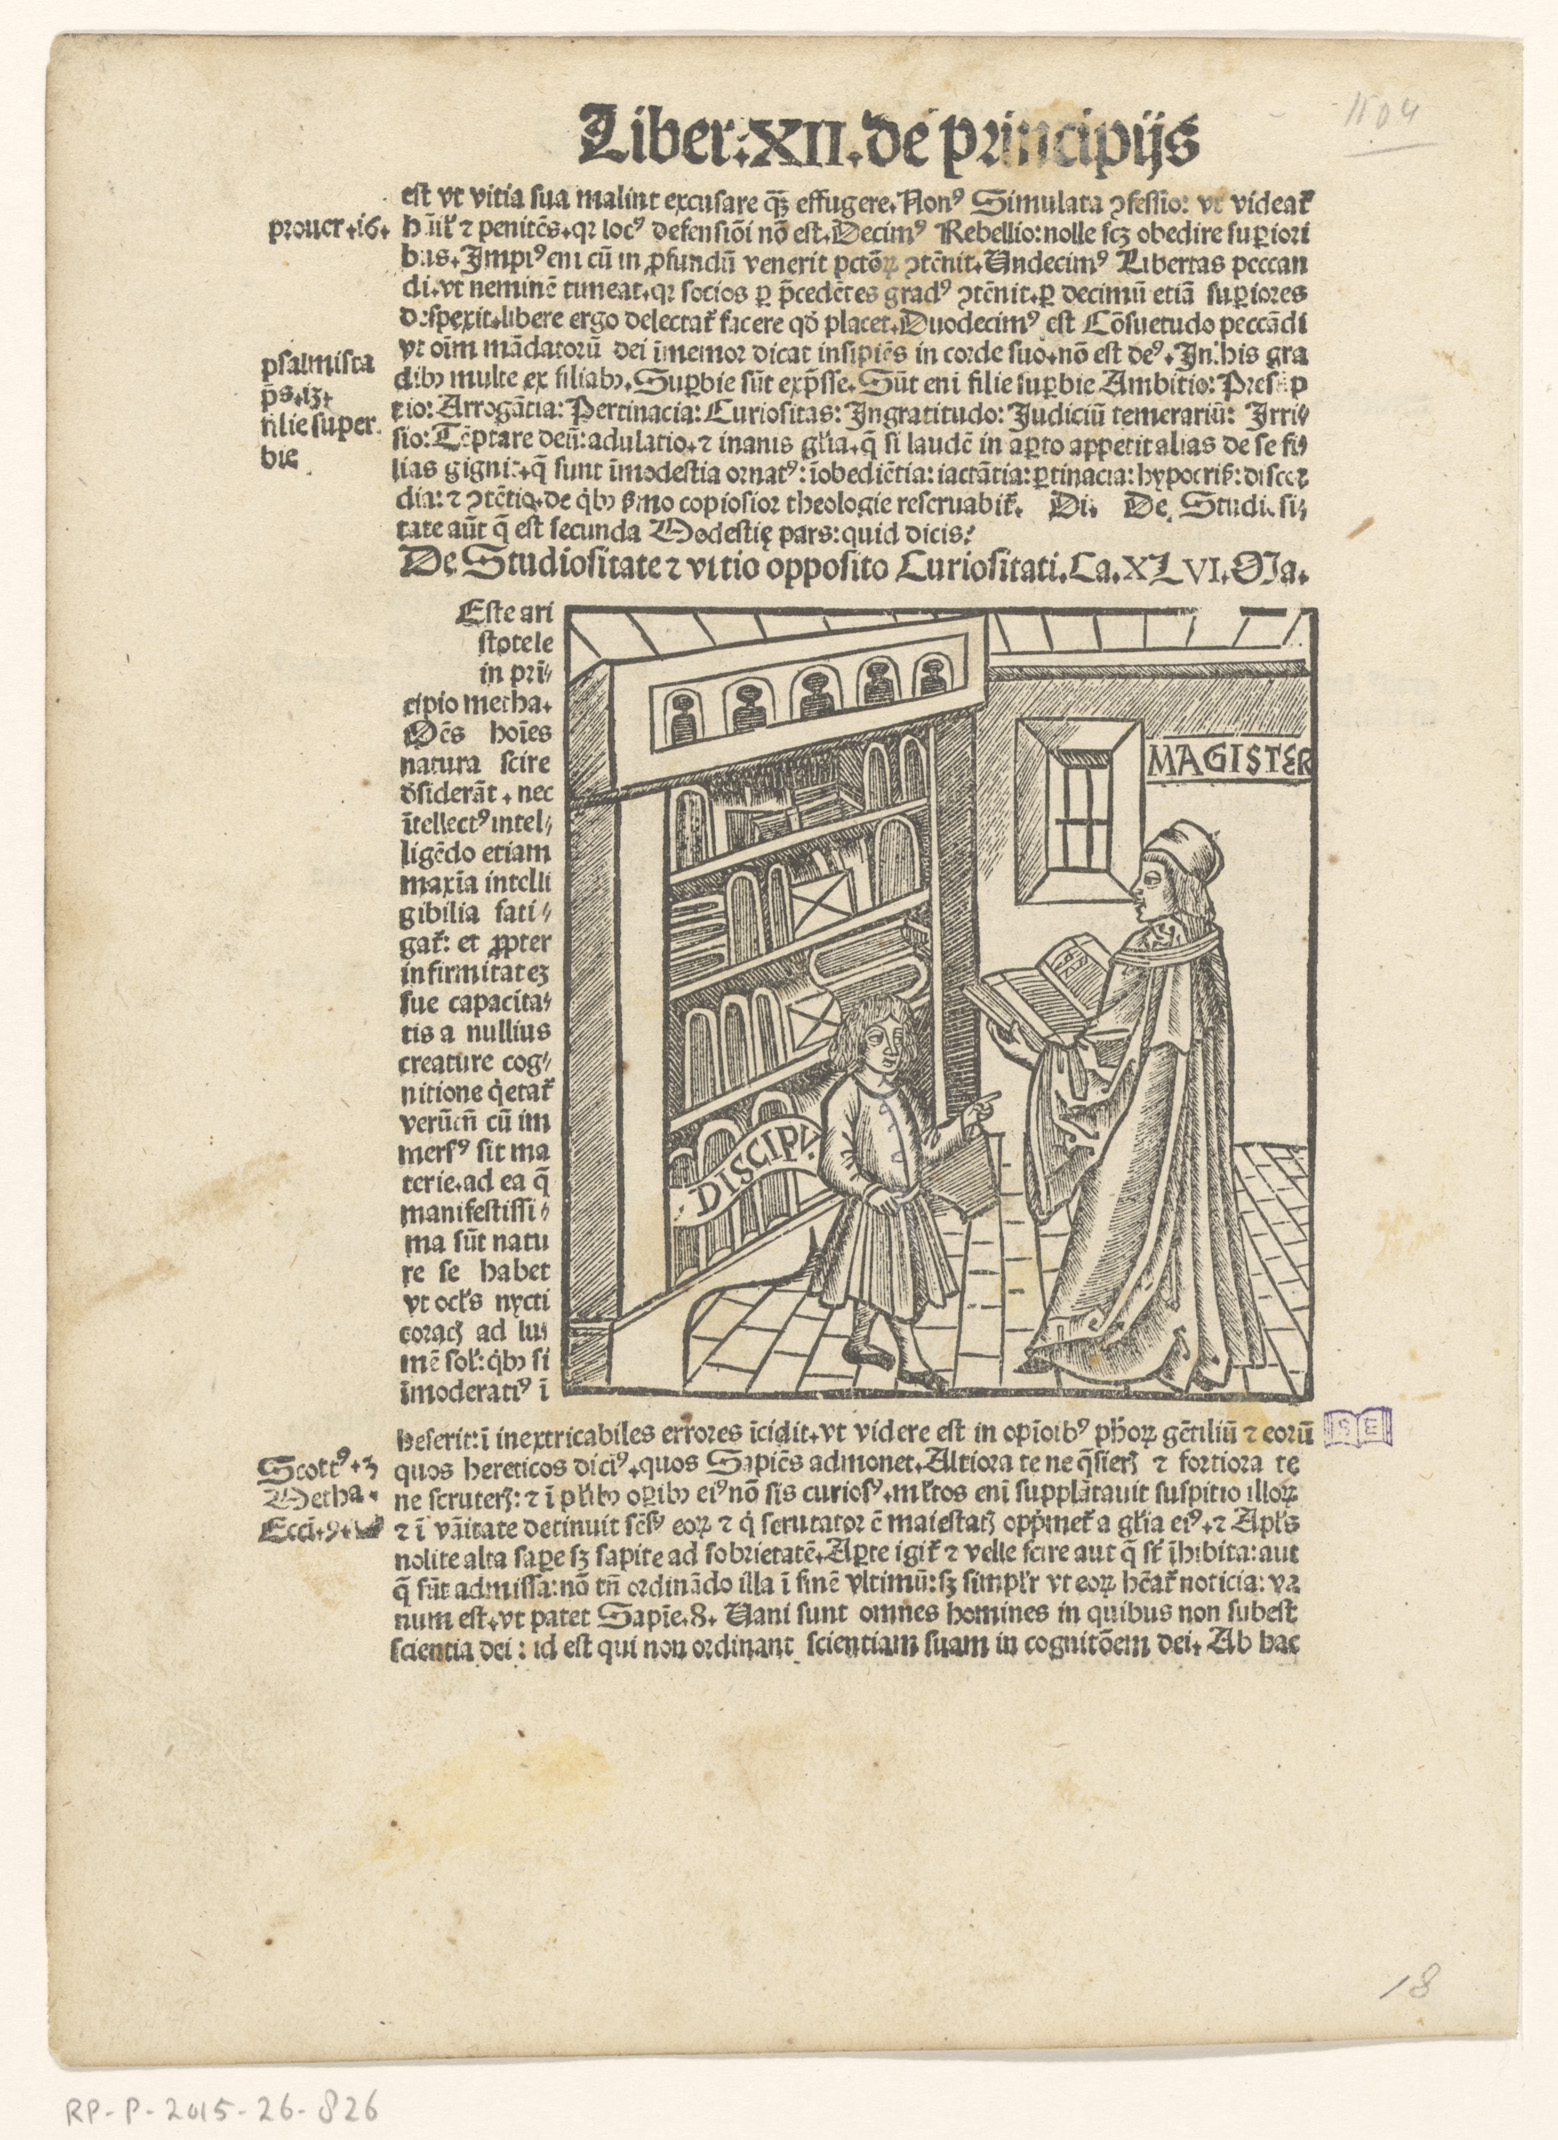 1504
Liber.XII.de principijs
est vt vitia sua malint excusare q̄ꝫ effugere. Nonꝰ Simulata ꝯfessio: vt videat᷑
prouer.16.
hūil᷑ ⁊ penitēs.qꝛ locꝰ defensiōi nō est. Decimꝰ Rebellio: nolle scꝫ obedire suꝑiori
bus. Impiꝰ eni cū in ꝓfundū venerit pctōꝝ ꝯtēnit. Undecimꝰ Libertas peccan
di.vt neminē timeat.qꝛ socios ꝑ p̄cedētes gradꝰ ꝯtēnit.ꝑ decimū etiā suꝑiores
despexit.libere ergo delectat᷑ facere qd̄ placet. Duodecimꝰ est Cōsuetudo peccādi
vt oīm mādatorū dei īmemor dicat insipiēs in corde suo.nō est deꝰ. In his gra
psalmista
p̄s.13.
dibꝫ multe ex filiabꝫ. Suꝑbie sūt exp̄sse. Sūt eni filie suꝑbie Ambitio: Presūp
tio: Arrogātia: Pertinacia: Curiositas: Ingratitudo: Judiciū temerariū: Irri⸗
filie super
bie
sio: Tēptare deū: adulatio.⁊ inanis gl᷑ia.q̄ si laudē in aꝑto appetit alias de se fi⸗
lias gignit.q̄ sunt īmodestia ornatꝰ: īobediētia: iactātia: ꝑtinacia: hypocris᷑: discor
dia: ⁊ ꝯtētio.de q̇bꝫ ẜmo copiosior theologie reseruabit᷑. Di. De Studiosi⸗
tate aūt q̄ est secunda Modestię pars: quid dicis?
De Studiositate ⁊ vitio opposito Curiositati. Ca.XLVI. Ma.
Este ari
stotele
in prī⸗
cipio metha.
Oēs hoīes
natura scire
d̄siderāt. nec
ītellectꝰ intel⸗
ligēdo etiam
maxīa intelli
gibilia fati⸗
gat᷑: et ꝓpter
infirmitateꝫ
sue capacita⸗
tis a nullius
creature cog⸗
nitione q̇etat᷑
verūtn̄ cū im
mersꝰ sit ma
terie.ad ea q̄
manifestissi⸗
ma sūt natu
re se habet
vt ocl᷑s nycti
coracꝭ ad lu⸗
mē sol᷑: q̇bꝫ si
īmoderatiꝰ ī
MAGISTER
DISCIPV.
heserit: ī inextricabiles errores īcidit.vt videre est in opīoibꝰ ph᷑oꝝ gētiliū ⁊ eorū
SE
Scottꝰ.3
Metha.
Ecci.9.
quos hereticos diciꝰ.quos Sapiēs admonet. Altiora te ne q̄sierꝭ ⁊ fortiora te
ne scruterꝭ: ⁊ ī pl᷑ibꝫ oꝑibꝫ eiꝰ nō sis curiosꝰ.ml᷑tos eni supplātauit suspitio illoꝝ
⁊ ī vāitate detinuit sēsꝰ eoꝝ ⁊ q̇ scrutator ē maiestatꝭ opp̄met᷑ a gl᷑ia eiꝰ.⁊ Apl᷑s
nolite alta saꝑe sꝫ sapite ad sobrietatē. Aꝑte igit᷑ ⁊ velle scire aut q̄ st᷑ īhibita: aut
q̄ sūt admissa: nō tn̄ ordinādo illa ī finē vltimū: sꝫ simpl᷑r vt eoꝝ hēat᷑ noticia: va
num est.vt patet Sapīe.8. Uani sunt omnes homines in quibus non subest
scientia dei: id est qui non ordinant scientiam suam in cognitōem dei. Ab hac
18
RP-P-2015-26-826